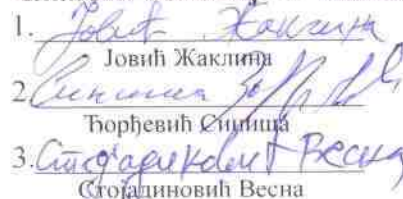 1. Јовић Жаклина
Јовић Жаклина
2. Синиша
Ђорђевић Синиша
3. Стојадиновић Весна
Стојадиновић Весна